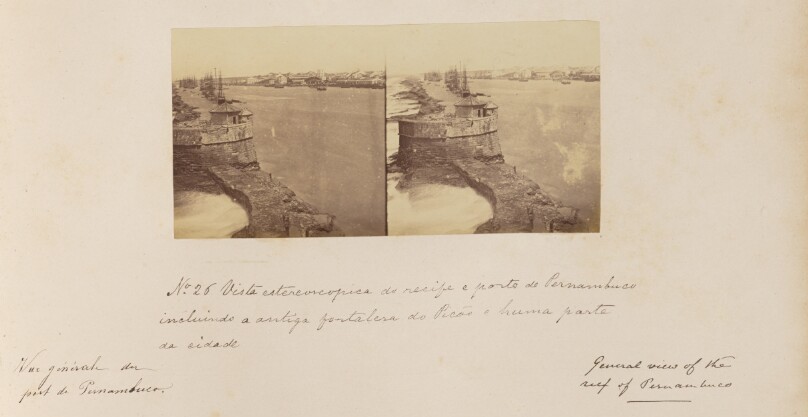 No. 26 Vista estereoscopica do recife e porto de Pernambuco
incluindo a antiga fortaleza do Picão e huma parte
da cidade
Vue générale du
port de Pernambuco.
General view of the
reef of Pernambuco